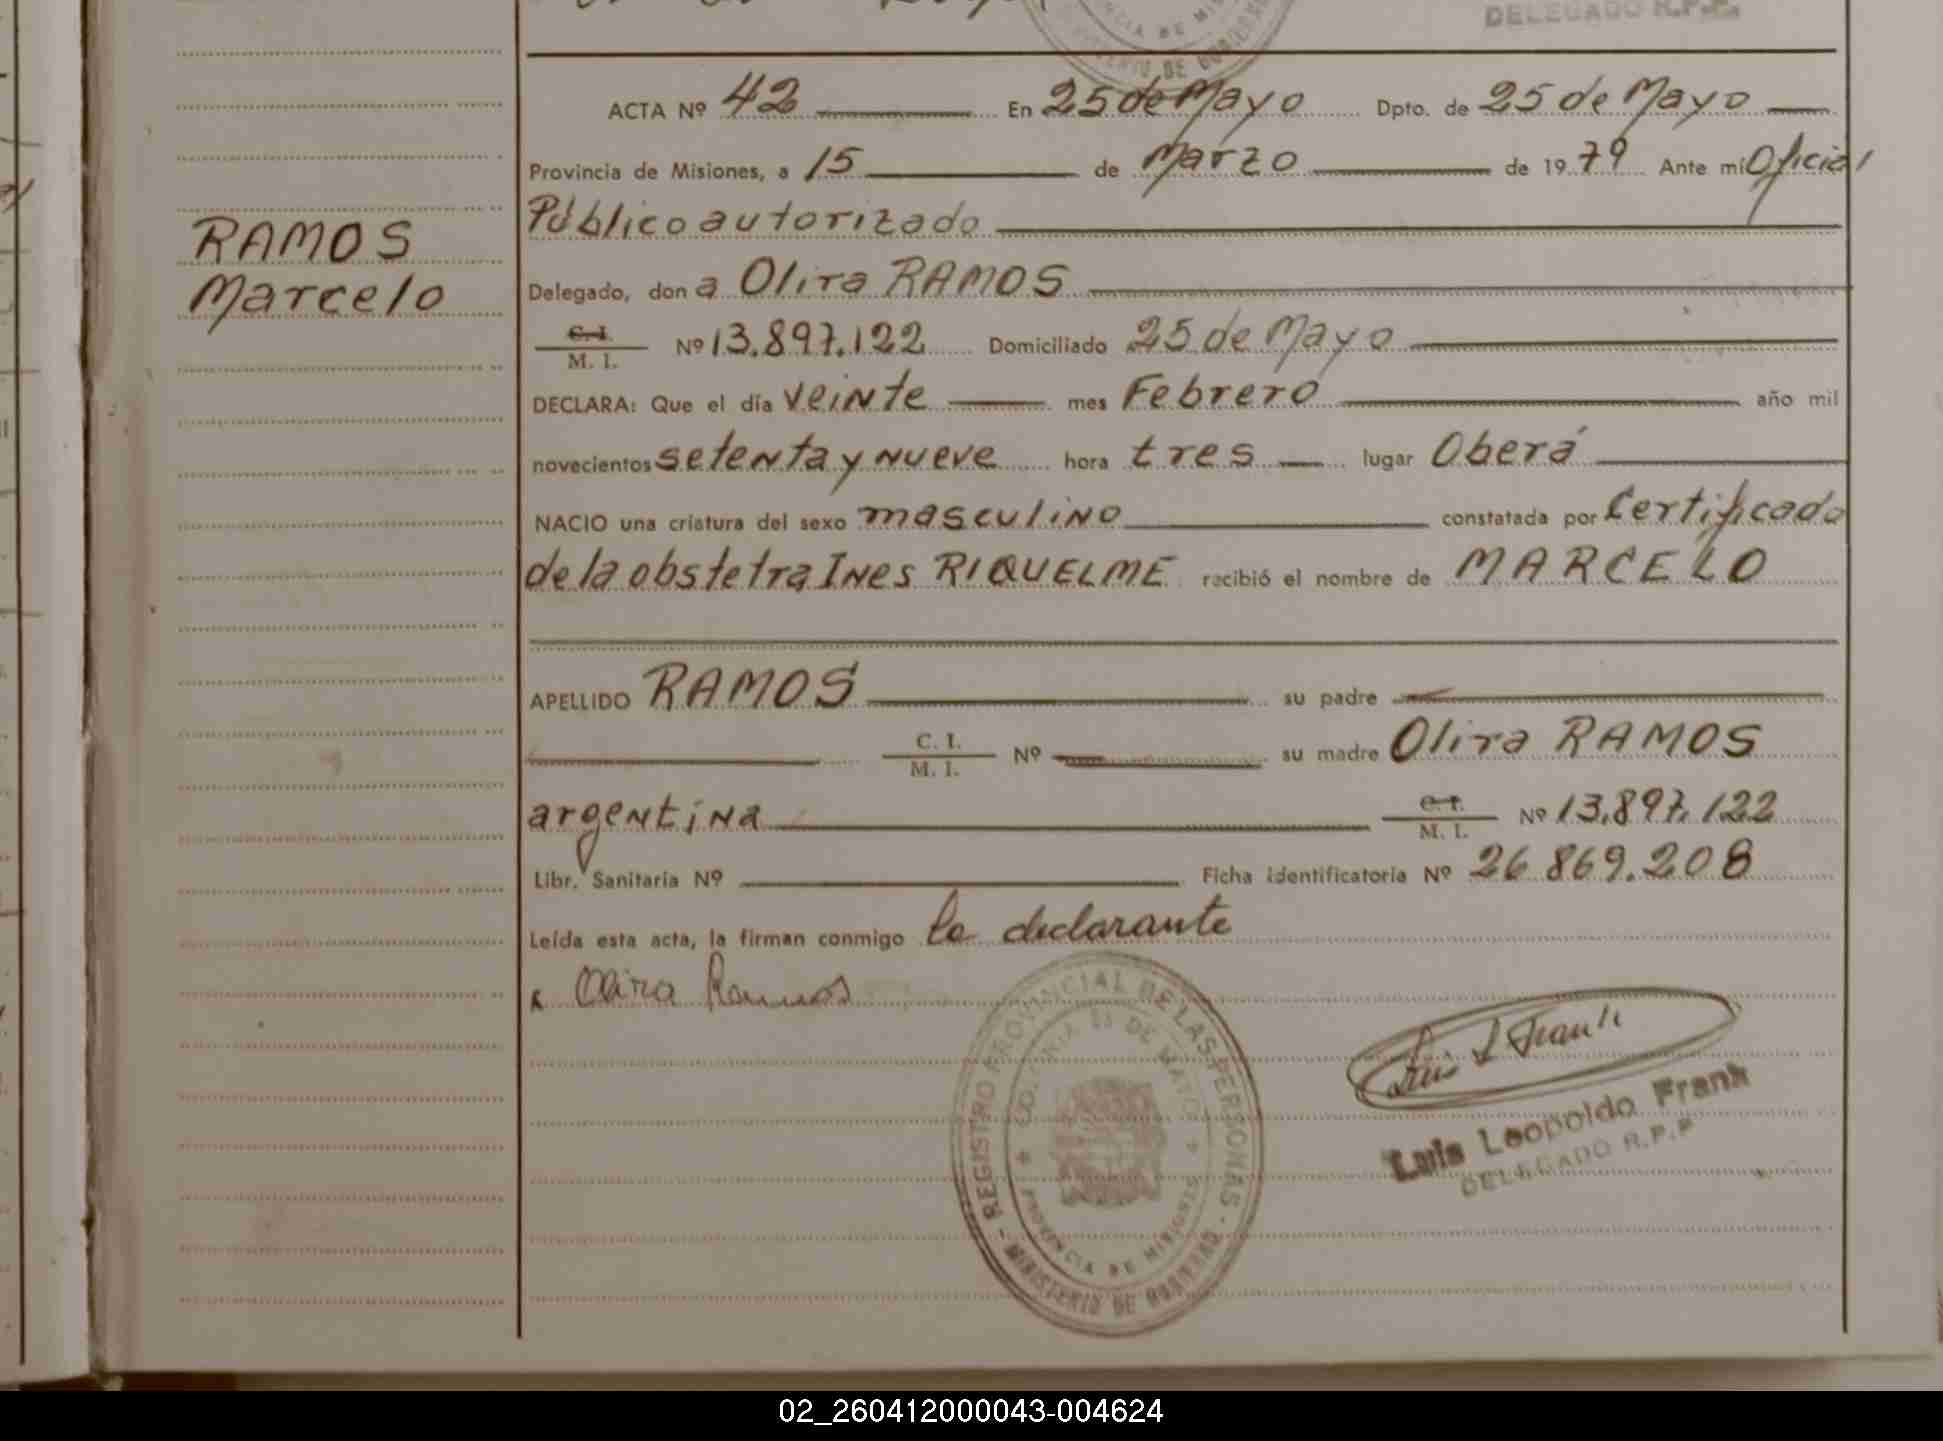 DELEGADO R.P.P.
ACTA Nº 42 En 25 de Mayo Dpto. de 25 de Mayo
Provincia de Misiones, a 15 de Marzo de 1979 Ante mí Oficial
Público autorizado
RAMOS
Marcelo
Delegado, don a Olira RAMOS
C.I.
M. I. Nº 13.897.122 Domiciliado 25 de Mayo
DECLARA: Que el día veinte mes Febrero año mil
novecientos setenta y nueve hora tres lugar Oberá
NACIO una criatura del sexo masculino constatada por Certificado
de la obstetra Ines RIQUELME recibió el nombre de MARCELO
APELLIDO RAMOS su padre
C. I.
M. I. Nº su madre Olira RAMOS
argentina C. I.
M. I. Nº 13.897.122
Libr. Sanitaria Nº Ficha identificatoria Nº 26.869.208
Leída esta acta, la firman conmigo la declarante
x Olira Ramos
REGISTRO PROVINCIAL DE LAS PERSONAS
25 DE MAYO
PROVINCIA DE MISIONES
MINISTERIO DE GOBIERNO
Luis L Frank
Luis Leopoldo Frank
DELEGADO R.P.P
02_260412000043-004624